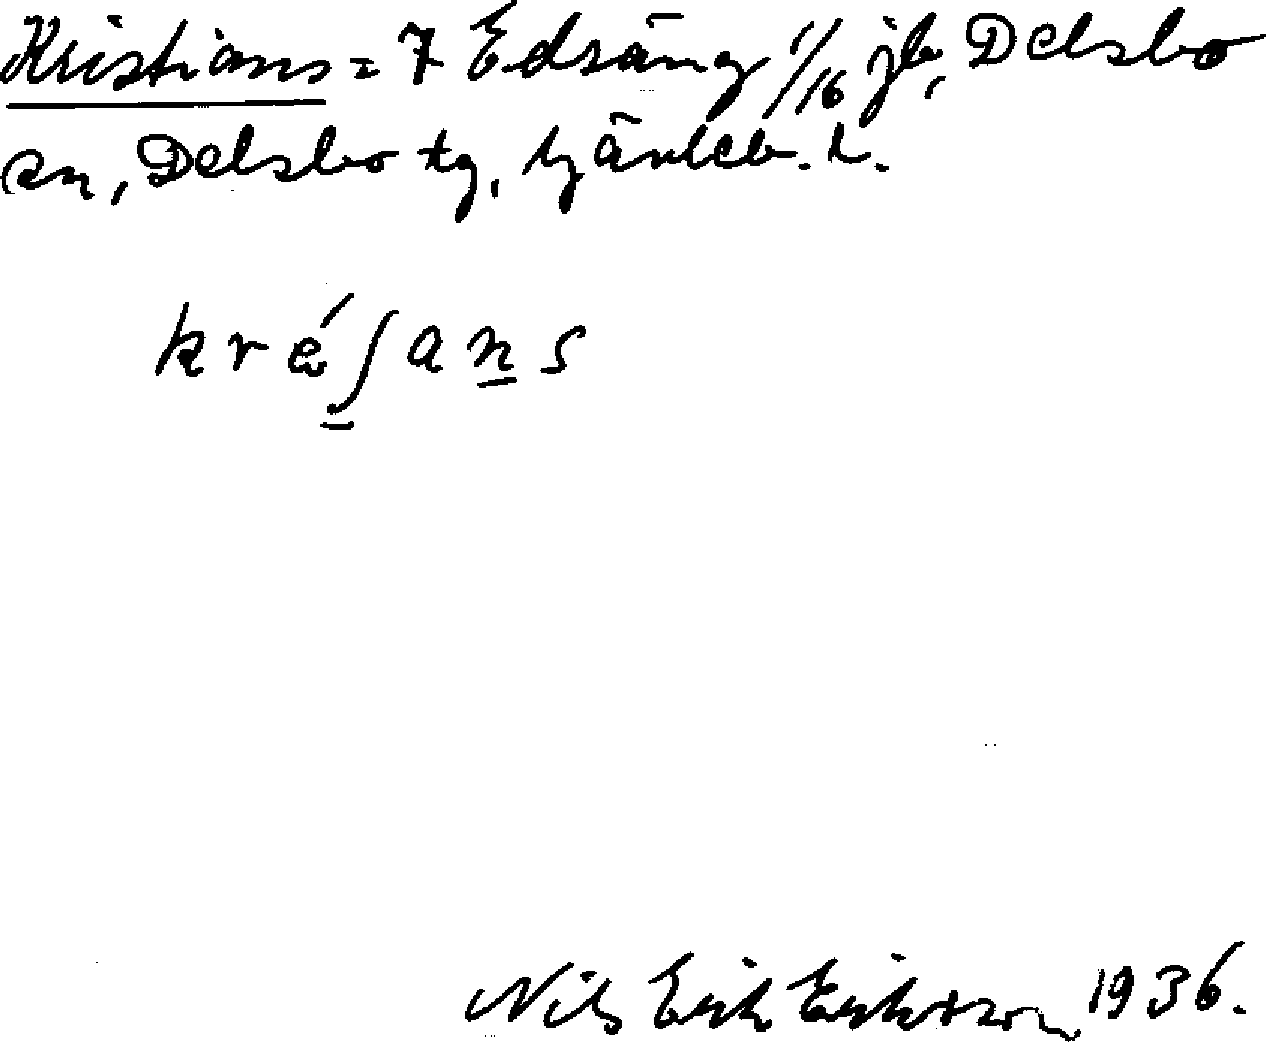 Kristians = 7 Edsäng 1/16 jb, Delsbo
sn, Delsbo tg, Gävleb. l.
kréʃans
Nils Erik Eriksson 1936.